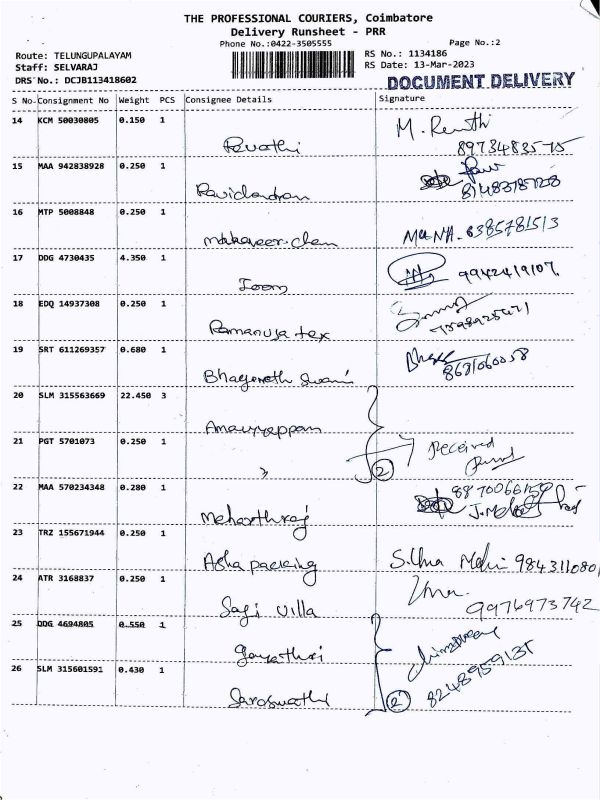 THE PROFESSIONAL COURIERS, Coimbatore
Delivery Runsheet - PRR
Phone No.:0422-3505555 Page No.:2
Route: TELUNGUPALAYAM RS No.: 1134186
Staff: SELVARAJ RS Date: 13-Mar-2023
DRS No.: DCJB113418602 DOCUMENT DELIVERY
S No Consignment No Weight PCS Consignee Details Signature
14 KCM 50030805 0.150 1
Revathi 8973483575
15 MAA 942838928 0.250 1
Ravichandran
16 MTP 5008848 0.250 1
Mahaveer.chem 6385781513
17 DDG 4730435 4.350 1
9942419107
18 EDQ 14937308 0.250 1
Ramanuja tex
19 SRT 611269357 0.680 1
Bhagerath Swami 8631060058
20 SLM 315563669 22.450 3
21 PGT 5701073 0.250 1
" 2 Received
22 MAA 570234348 0.280 1
23 TRZ 155671944 0.250 1
Asha packing 9843110801
24 ATR 3168837 0.250 1
Sagi villa Uma 9976973742
25 DDG 4694805 0.550 1
Gayathri
26 SLM 315601591 0.430 1
Saroswathi 2 8248959135